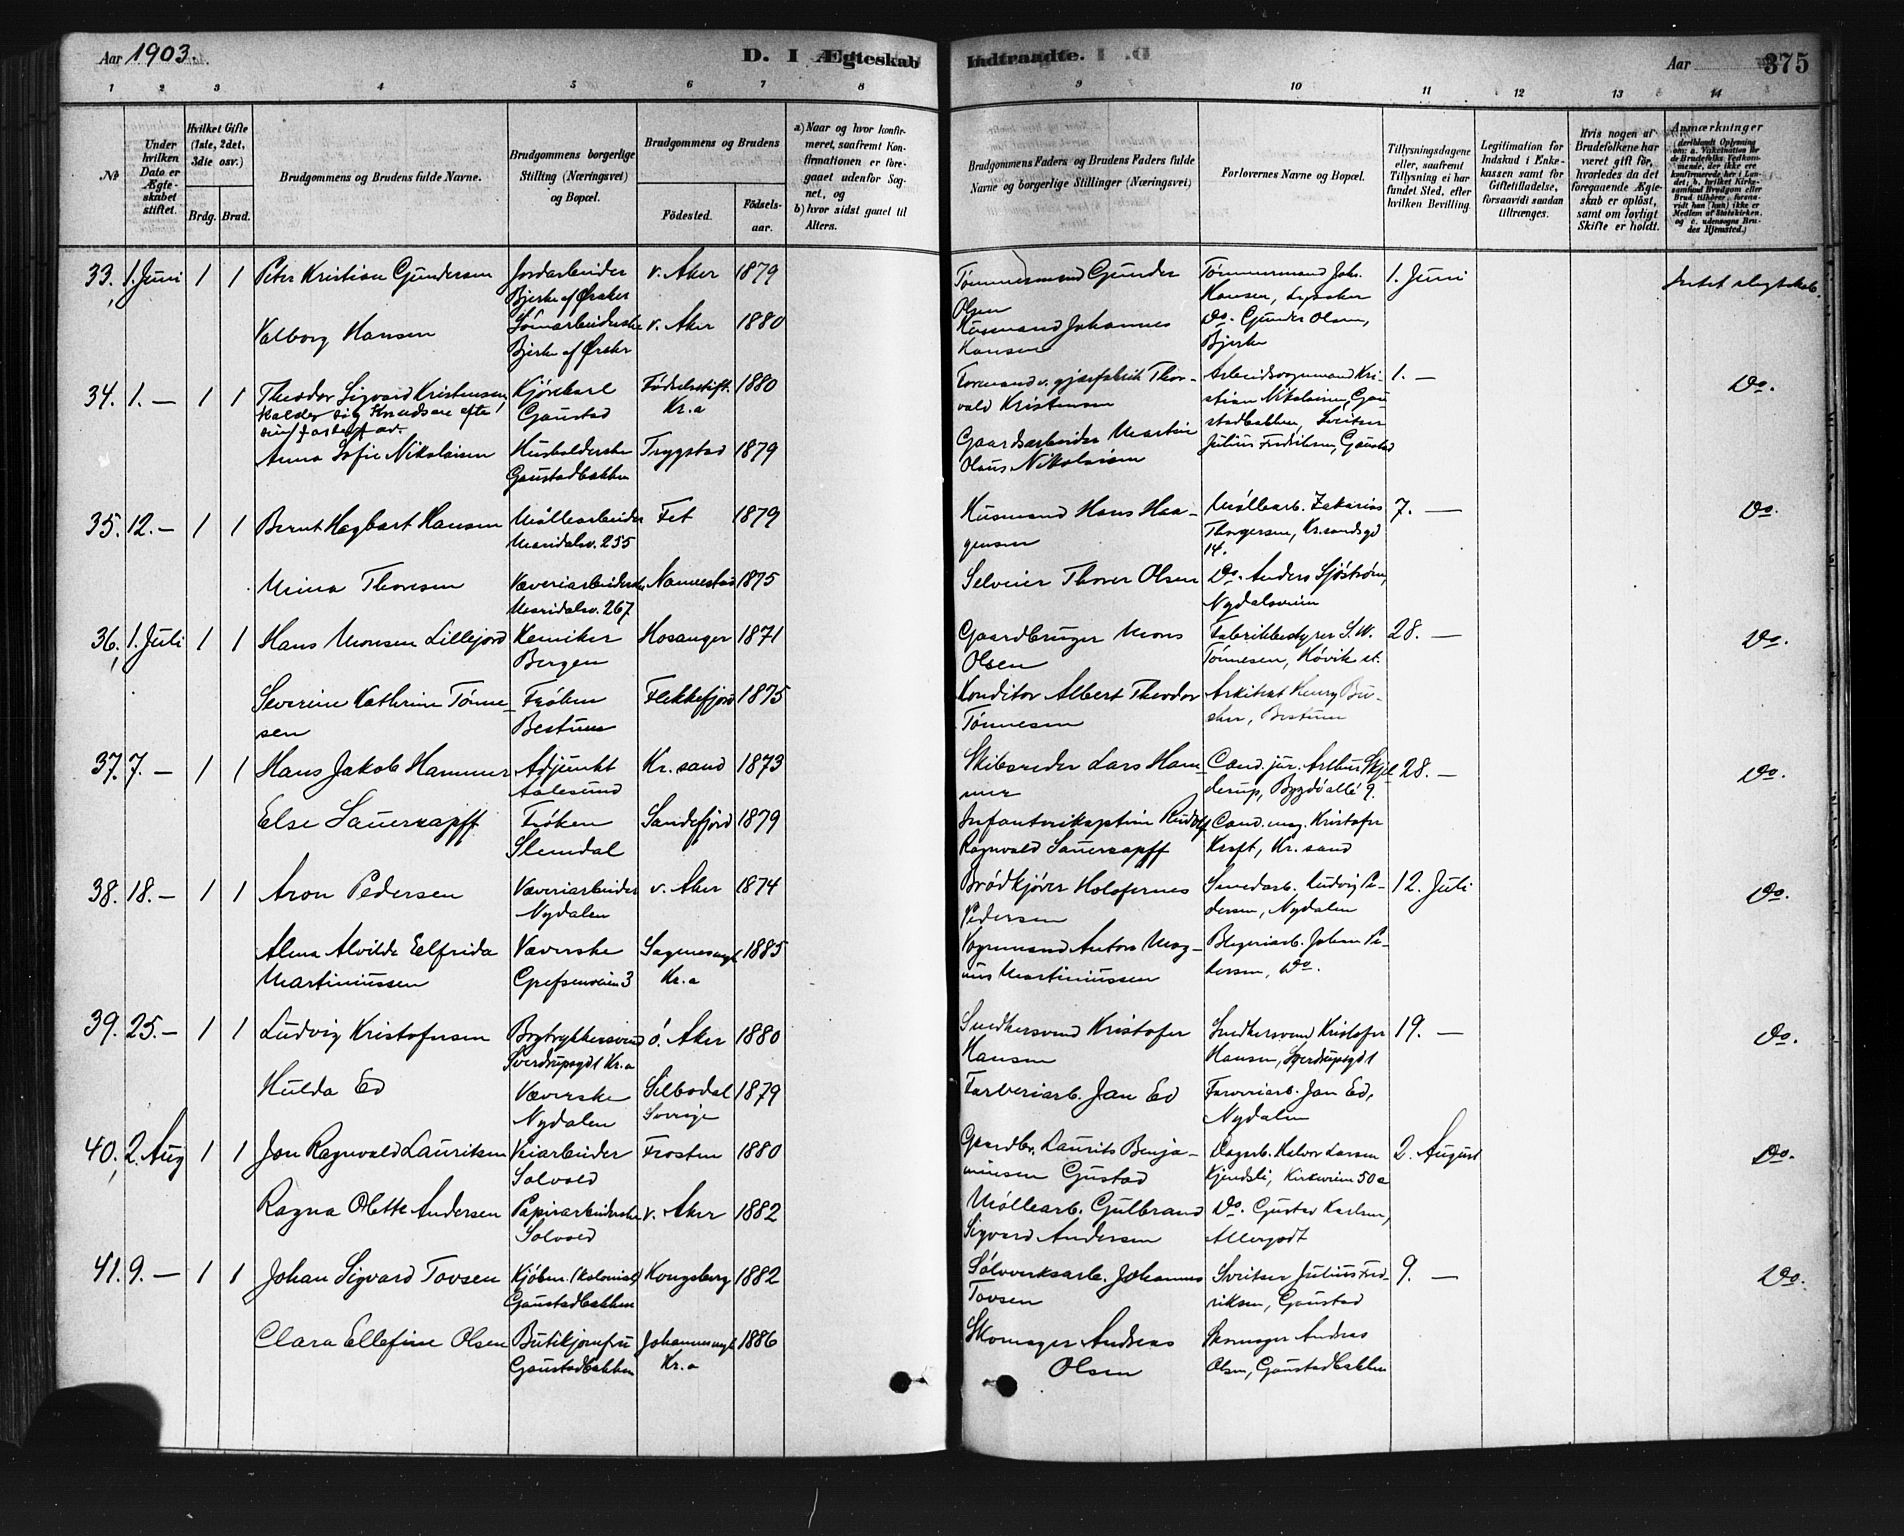 Aar 1903.
D. I Ægteskab
Indtraadte.
Aar
375
1 2 3 4 5 6 7 8 9 10 11 12 13 14
No
Under hvilken Dato er Ægteskabet stiftet.
Hvilket Gifte (1ste, 2det, 3die osv.)
Brdg. Brud.
Brudgommens og Brudens fulde Navne.
Brudgommens borgerlige Stilling (Næringsvei) og Bopæl.
Brudgommens og Brudens
Fødested.
Fødselsaar.
a) Naar og hvor konfirmeret, saafremt Konfirmationen er foregaaet udenfor Sognet, og
b) hvor sidst gaaet til Alters.
Brudgommens Faders og Brudens Faders fulde Navne og borgerlige Stillinger (Næringsvei)
Forlovernes Navne og Bopæl.
Tillysningsdagene eller, saafremt Tillysning ei har fundet Sted, efter hvilken Bevilling.
Legitimation for Indskud i Enkekassen samt for Giftetilladelse, forsaavidt saadan tiltrænges.
Hvis nogen af Brudefolkene har været gift før, hvorledes da det foregaaende Ægteskab er opløst, samt om lovligt Skifte er holdt.
Anmærkninger
33. 1. Juni 1 1 Peter Kristian Gundersen
Jordarbeider
Bjerke af Østker
v. Aker 1879
Tømmermand Gunder
Olsen
Tømmermand Joh.
Hansen, Lysaker
1. Juni
Intet slegtskab.
Valborg Hansen
Bjerke af Østker
v. Aker 1880
Husmand Johannes
Hansen
Do. Gunder Olsen,
Bjerke
34. 1. — 1 1 Theodor Sigvard Kristensen,
kalder sig Knudsen efter
Kjørekarl
Gaustad
Fødselsstift.
Kr.a
1880
Formand v. gjærfabrik Thor-
vald Kristensen
Arbeidsformand Kri-
stian Nikolaisen, Gau-
stadbakken, Sveitser
Julius Fredriksen, Gaustad
1. —
Do.
Anna Sofie Nikolaisen
Husholderske
Gaustadbakken
Trygstad 1879
Gaardsarbeider Martin
Olaus Nikolaisen
35. 12. — 1 1 Bernt Hagbart Hansen
Møllearbeider
Maridalsv. 255
Fet 1879
Husmand Hans Haa-
gensen
Møllearb. Zakarias
Thorgersen, Kr.sandsgd
14.
7. —
Do.
Mina Thoresen
Væveriarbeiderske
Maridalsv. 267
Nannestad 1875
Selveier Thorer Olsen
Do. Anders Sjöström,
Nydalsveien
36. 1. Juli 1 1 Hans Monsen Lillejord
Kemiker
Bergen
Hosanger 1871
Gaardbruger Mons
Olsen
Fabrikbestyrer S. W.
Tønnesen, Høvik st.
28. —
Do.
Severine Kathrine Tønne-
sen
Frøken
Bestum
Flekkefjord 1875
Konditor Albert Theodor
Tønnesen
Arkitekt Henry Bu-
cher, Bestum
37. 7. — 1 1 Hans Jakob Hammer
Adjunkt
Aalesund
Kr.sand 1873
Skibsreder Lars Ham-
mer
Cand. jur. Arthur Skjel-
derup, Bygdø allé 9.
28. —
Do.
Else Sauerzapff
Frøken
Slemdal
Sandefjord 1879
Infanterikaptein Rudolf
Ragnvald Sauerzapff
Cand. mag. Kristofer
Kraft, Kr.sand
38. 18. — 1 1 Aron Pedersen
Væveriarbeider
Nydalen
v. Aker 1874
Brødkjører Holofernes
Pedersen
Smedarb. Ludvig Pe-
dersen, Nydalen
12. Juli
Do.
Alma Alvilde Elfrida
Martiniussen
Væverske
Grefsenveien 3
Sagenesmgh
Kr.a
1885
Vognmand Anton Mag-
nus Martiniussen
Blegeriarb. Johan Pe-
dersen, Do.
39. 25. — 1 1 Ludvig Kristofersen
Bogtrykkersvend
Sverdrupsgd 1 Kr.a
ø. Aker 1880
Snedkersvend Kristofer
Hansen
Snedkersvend Kristofer
Hansen, Sverdrupsgd 1
19. —
Do.
Hulda Ed
Væverske
Nydalen
Silbodal
Sverige
1879
Farveriarb. Jan Ed
Farveriarb. Jan Ed,
Nydalen
40. 2. Aug 1 1 Jon Ragnvald Lauritsen
Veiarbeider
Solvold
Frosten 1880
Gaardbr. Laurits Benja-
minsen Gustad
Dagarb. Halvor Larsen
Kjendsli, Kirkeveien 50a
2. August
Do.
Ragna Olette Andersen
Papirarbeiderske
Solvold
v. Aker 1882
Møllearb. Gulbrand
Sigvard Andersen
Do. Gustav Karlsen,
41. 9. — 1 1 Johan Sigvard Tovsen
Kjøbm. (kolonial)
Gaustadbakken
Kongsberg 1882
Sølvverksarb. Johannes
Tovsen
Sveitser Julius Fred-
riksen, Gaustad
9. —
Do.
Clara Ellefine Olsen
Butikjomfru
Gaustadbakken
Johannesmgh
Kr.a
1886
Skomager Andreas
Olsen
Skomager Andreas
Olsen, Gaustadbakken